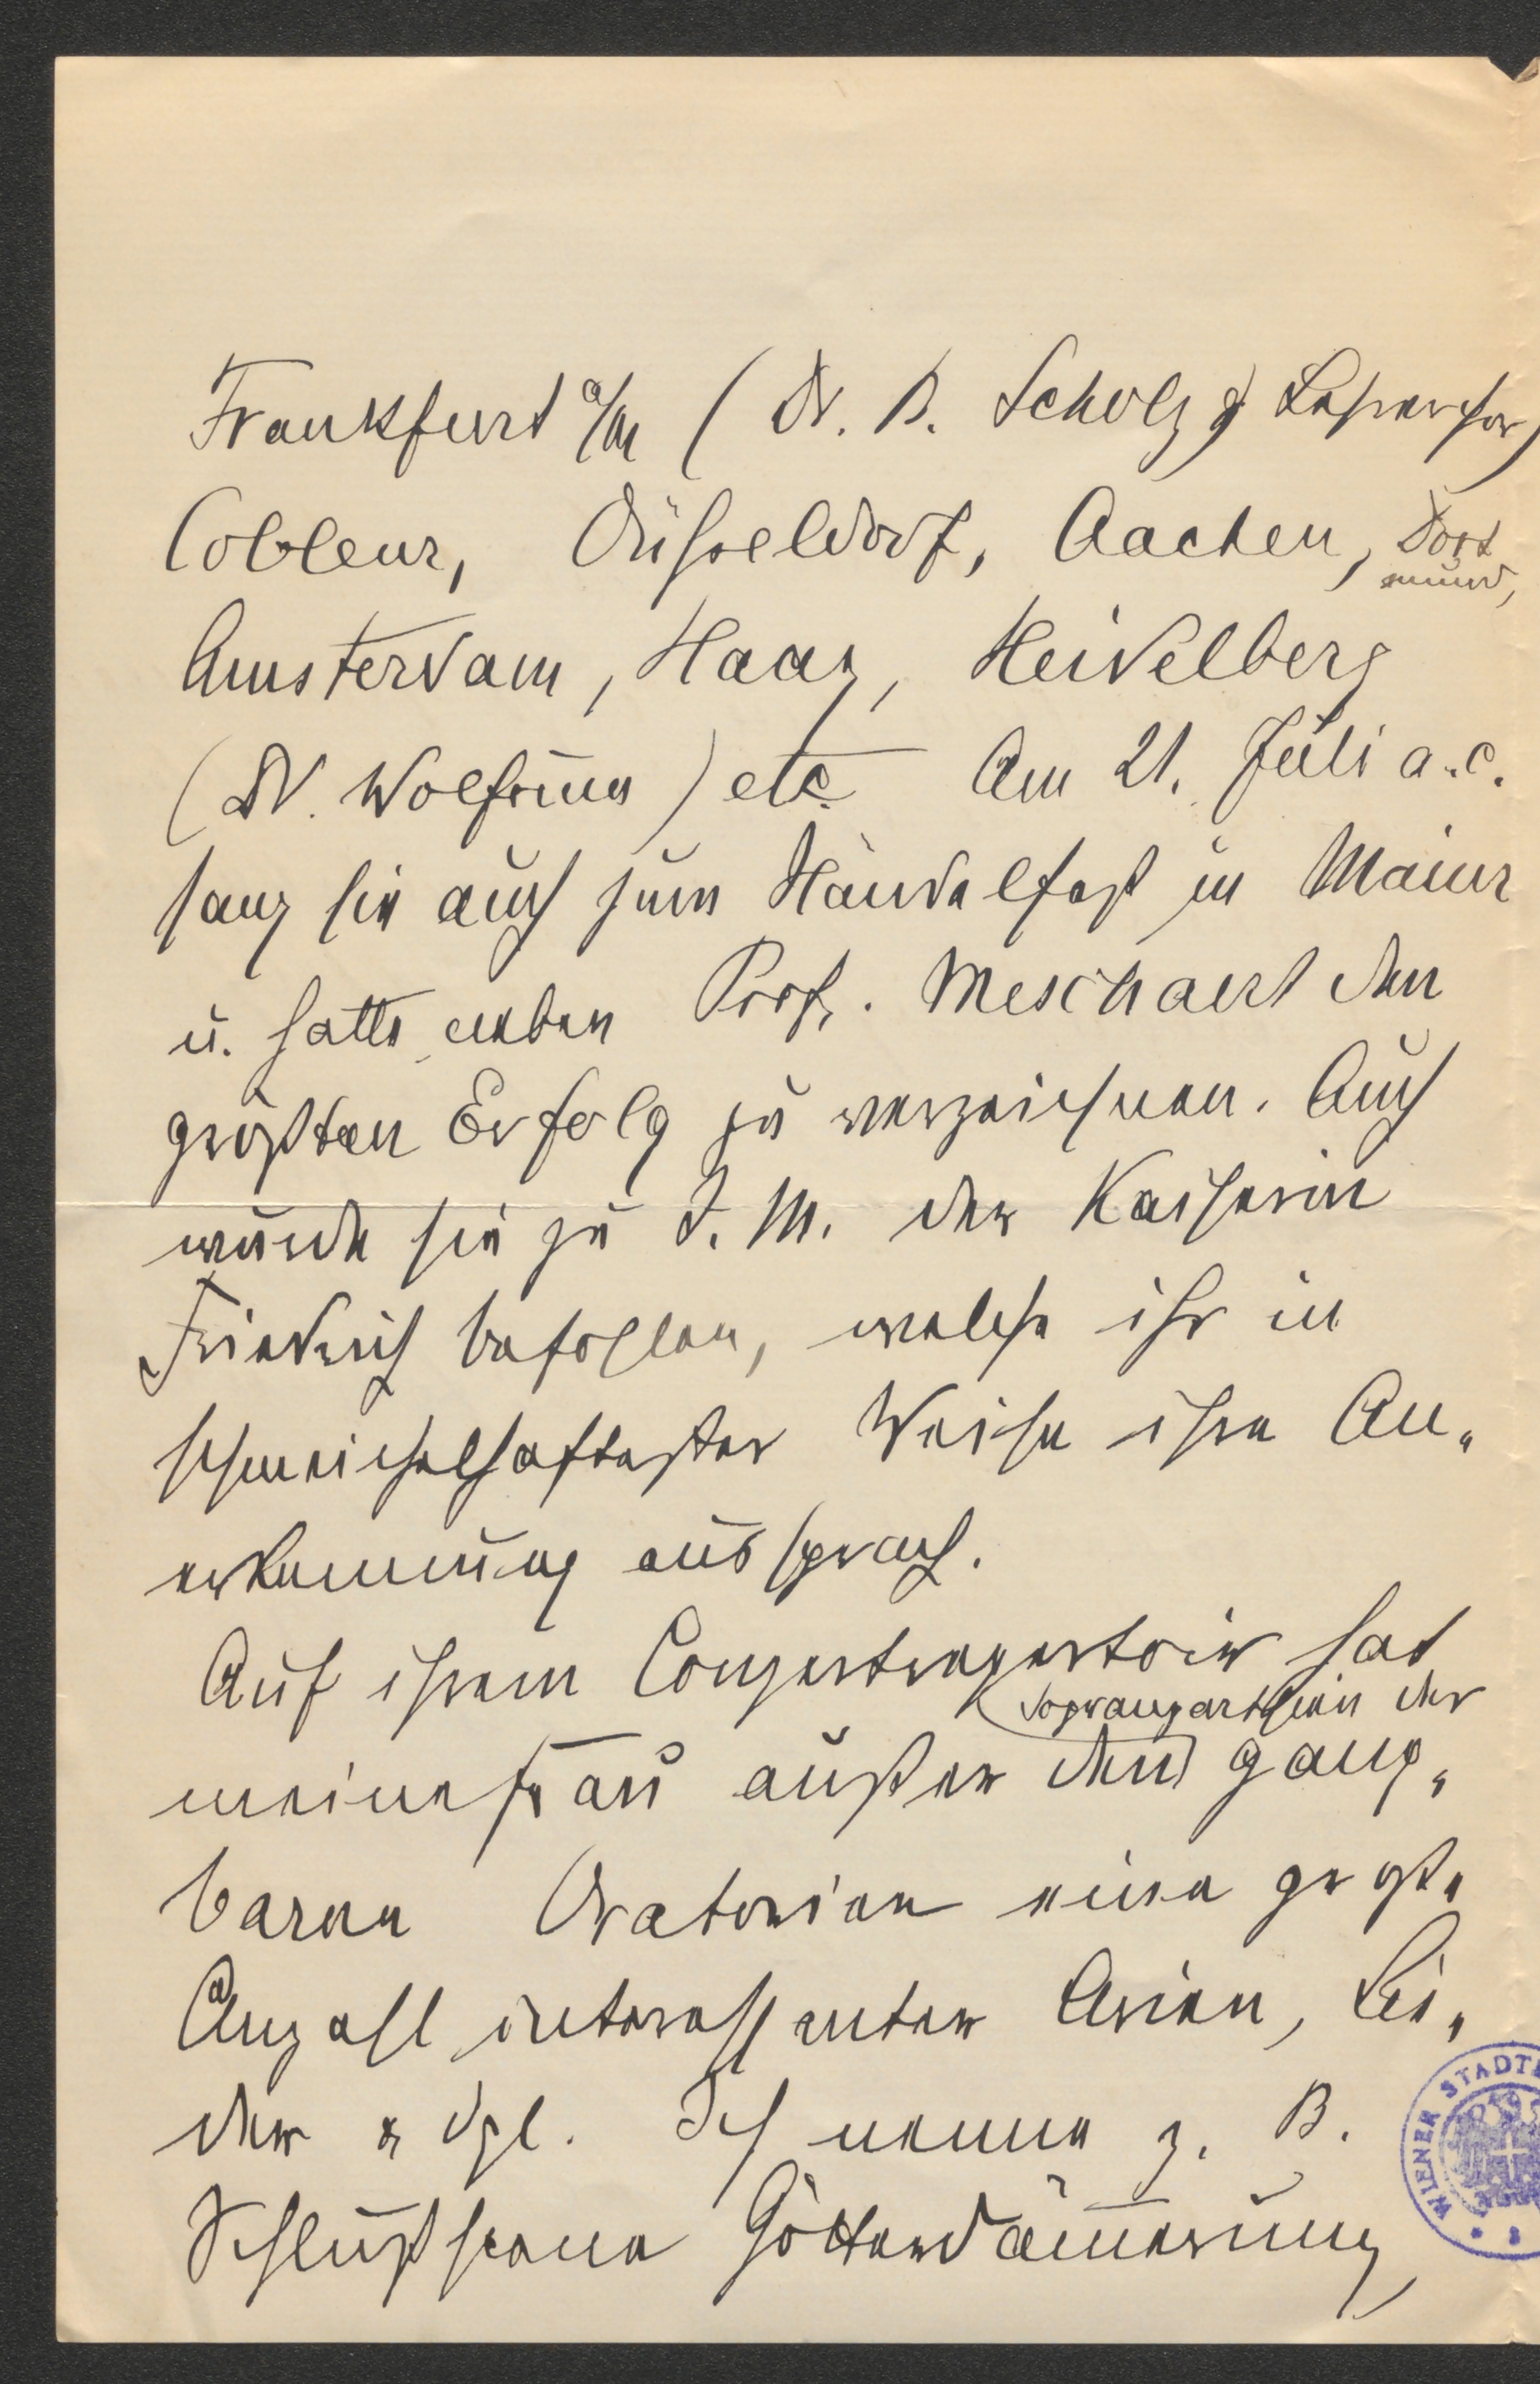 Frankfurt a/M (Dr. B. Scholz, Lehrerchor)
Coblenz, Düsseldorf, Aachen, Dort
mund,
Amsterdam, Haag, Heidelberg
(Dr. Wolfrum) etc. Am 21. Juli a.c.
sang sie auch zum Händelfest in Mainz
u. hatte neben Prof. Meschaert den
größten Erfolg zu verzeichnen. Auch
wurde sie zu I. M. der Kaiserin
Friedrich befohlen, welche ihr in
schmeichelhaftester Weise ihre An-
erkennung aussprach.
Auf ihrem Conzertrepertoir hat
Sopranparthien der
meine Frau außer den gang-
baren Oratorien eine große
Anzahl interessanter Arien, Lie-
der & dgl. Ich nenne z. B.
Schlußscene Götterdämmerung,
WIENER STADT